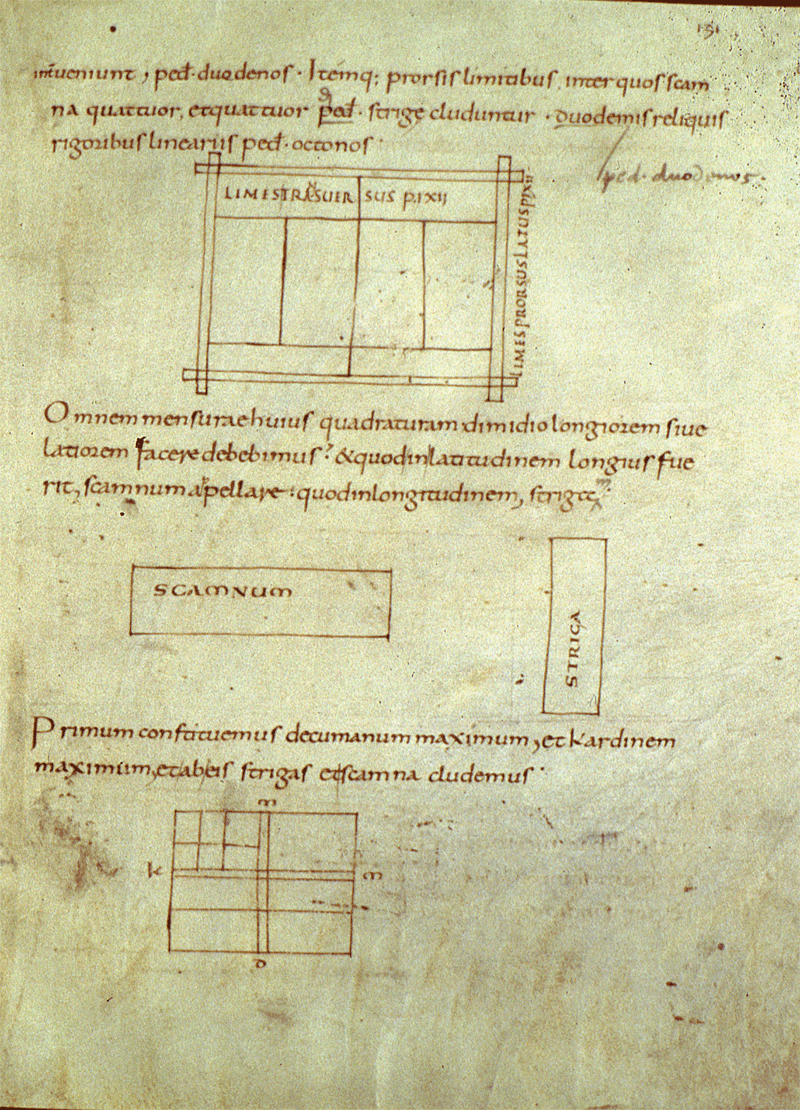 151
interueniunt, ped· duodenos· Itemq; prorsis limitibus, inter quos scam
na quattuor, et quattuor ped· strige cluduntur · Duodemis reliquis
rigoribus lineariis ped· octonos·
ped· duodenos·
LIMES TRASUER SUS P.IXII
LIMES PRORSUS LATUS PIXII
Omnem mensurae huius quadraturam dimidio longiorem siue
latiorem facere debebimus? & quod in latitudinem longius fue
rit, scamnum apellare: quod in longitudinem, striga
SCAMNUM
STRIGA
Primum constituemus decumanum maximum, et kardinem
maximum, et ab eis strigas et scamna cludemus·
m
k
m
D